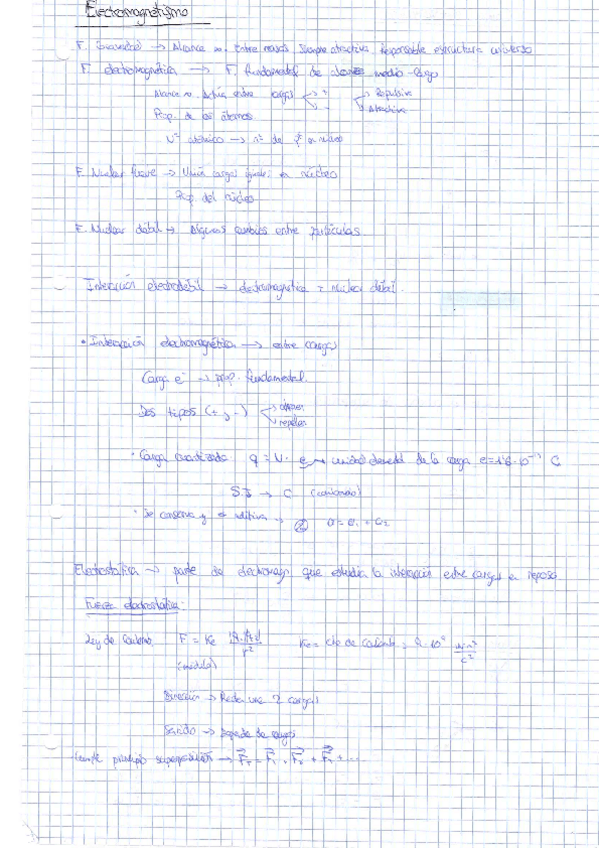 Electromagnetismo
F. Gravedad → Alcance ∞. Entre masas. Siempre atractiva. Responsable estructura universo
F. electromagnética → F. fundamental de alcance medio-largo
Alcance ∞. Actúa entre cargas + - Repulsiva
Atractiva
Prop. de los átomos
Nº atómico → nº de p+ en núcleo
F. Nuclear fuerte → Unir cargas iguales en núcleo
Prop. del núcleo
F. Nuclear débil → Algunos cambios entre partículas
Interacción electrodébil → electromagnética + nuclear débil.
• Interacción electromagnética → entre cargas
Carga e⁻ → prop. fundamental.
Dos tipos (+, -) atraer
repeler
• Carga cuantizada q = N · e → unidad elemental de la carga e = 1'6 · 10⁻¹⁹ C
SI → C (culombio)
• Se conserva y es aditiva →
Electrostática → parte de electromagn que estudia la interacción entre cargas en reposo
Fuerza electrostática:
Ley de Coulomb F = Ke Ke = cte de Coulomb = 9 · 10⁹ N·m²/C²
(módulo)
Dirección → Recta une 2 cargas
Sentido → Depende de cargas
Cumple principio superposición →